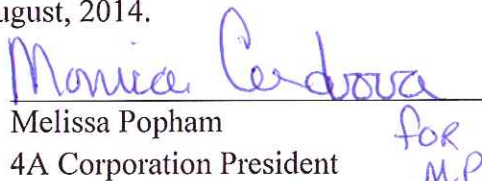 ugust, 2014.
Monica Cordova
Melissa Popham for
4A Corporation President M.P.